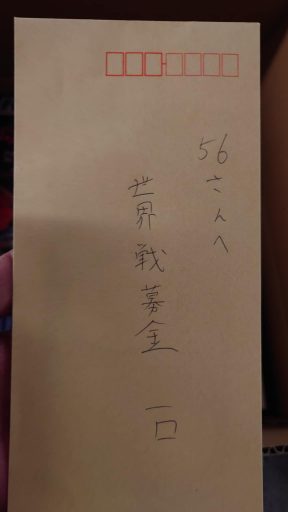 56さんへ
世界戦募金 一口